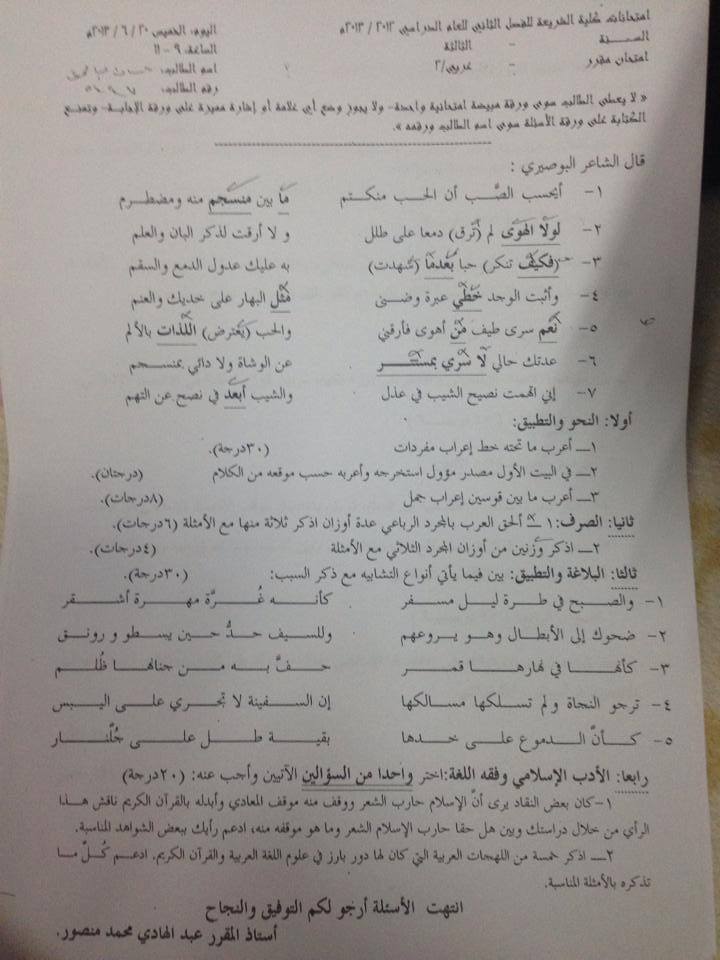 امتحانات كلية الشريعة للفصل الثاني للعام الدراسي ٢٠١٢ / ٢٠١٣م
اليوم: الخميس ٢٠ / ٦ / ٢٠١٣م
السنة - الثالثة
الساعة: ٩ - ١١
امتحان مقرر - عربي/٢
اسم الطالب:
رقم الطالب:
« لا يعطى الطالب سوى ورقة مبيضة امتحانية واحدة- ولا يجوز وضع أي علامة أو إشارة مميزة على ورقة الإجابة- وتمنع
الكتابة على ورقة الأسئلة سوى اسم الطالب ورقمه ».
قال الشاعر البوصيري :
١- أيحسب الصَّب أن الحب منكتم ما بين منسجم منه ومضطرم
٢- لولا الهوى لم (تُرق) دمعا على طلل ولا أرقت لذكر البان والعلم
٣- (فكيف تنكر) حبا بعدما (شهدت) به عليك عدول الدمع والسقم
٤- وأثبت الوجد خطَّي عبرة وضنى مثل البهار على خديك والعنم
٥- نعم سرى طيف من أهوى فأرقني والحب (يعترض) اللذات بالألم
٦- عدتك حالي لا سري بمستتر عن الوشاة ولا دائي بمنسجم
٧- إني اتهمت نصيح الشيب في عذل والشيب أبعد في نصح عن التهم
أولا: النحو والتطبيق:
١ــ أعرب ما تحته خط إعراب مفردات (٣٠درجة).
٢ــ في البيت الأول مصدر مؤول استخرجه وأعربه حسب موقعه من الكلام (درجتان).
٣ــ أعرب ما بين قوسين إعراب جمل (٨درجات)
ثانيا: الصرف: ١ــ ألحق العرب بالمجرد الرباعي عدة أوزان اذكر ثلاثة منها مع الأمثلة (٦درجات).
٢ــ اذكر وزنين من أوزان المجرد الثلاثي مع الأمثلة (٤درجات).
ثالثا: البلاغة والتطبيق: بين فيما يأتي أنواع التشابيه مع ذكر السبب: (٣٠درجة).
١- والصبح في طرة ليل مسفر كأنه غُرَّة مهرة أشقر
٢- ضحوك إلى الأبطال وهو يروعهم وللسيف حدُّ حين يسطو و رونق
٣- كأنها في نهارها قمر حفَّ به من جنانها ظُلم
٤- ترجو النجاة ولم تسلك مسالكها إن السفينة لا تجري على اليبس
٥- كأنَّ الدموع على خدها بقية طل على جُلَّنار
رابعا: الأدب الإسلامي وفقه اللغة: اختر واحدا من السؤالين الآتيين وأجب عنه: (٢٠درجة)
١-كان بعض النقاد يرى أنَّ الإسلام حارب الشعر ووقف منه موقف المعادي وأبدله بالقرآن الكريم ناقش هذا
الرأي من خلال دراستك وبين هل حقا حارب الإسلام الشعر وما هو موقفه منه، ادعم رأيك ببعض الشواهد المناسبة.
٢ــ اذكر خمسة من اللهجات العربية التي كان لها دور بارز في علوم اللغة العربية والقرآن الكريم. ادعم كُلّ ما
تذكره بالأمثلة المناسبة.
انتهت الأسئلة أرجو لكم التوفيق والنجاح
أستاذ المقرر عبد الهادي محمد منصور.